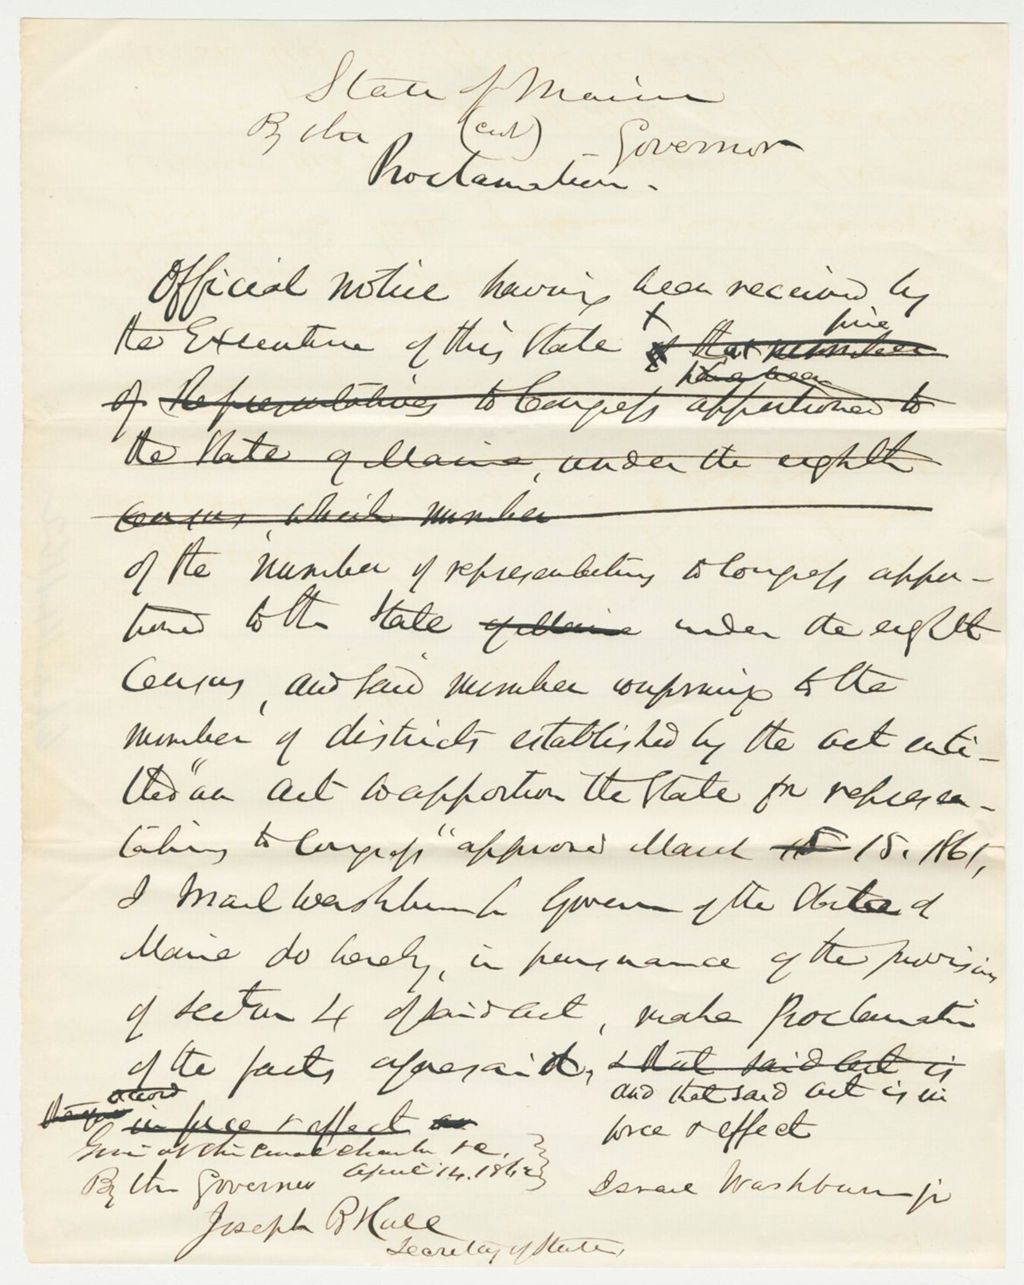 State of Maine
By the (cut) Governor
Proclamation.
Official notice having been received by
the Executive of this State x five
that number
have been
of Representatives to Congress apportioned to
the State of Maine, under the eighth
Census, which number
of the number of representatives to Congress appor-
tioned to the State of Maine under the eighth
Census, and said number conforming to the
number of districts established by the act enti-
tled "an act to apportion the State for represen-
tatives to Congress" approved March 15 15. 1861,
I Israel Washburn Jr Governor of the State of
Maine do hereby, in pursuance of the provisions
of section 4 of said act, make Proclamation
of the facts aforesaid, & that said act is
and that said act is in
in force & effect
force & effect
Given at the Council Chamber &c.
April 14. 1862
By the Governor Israel Washburn jr
Joseph B Hall
Secretary of State,